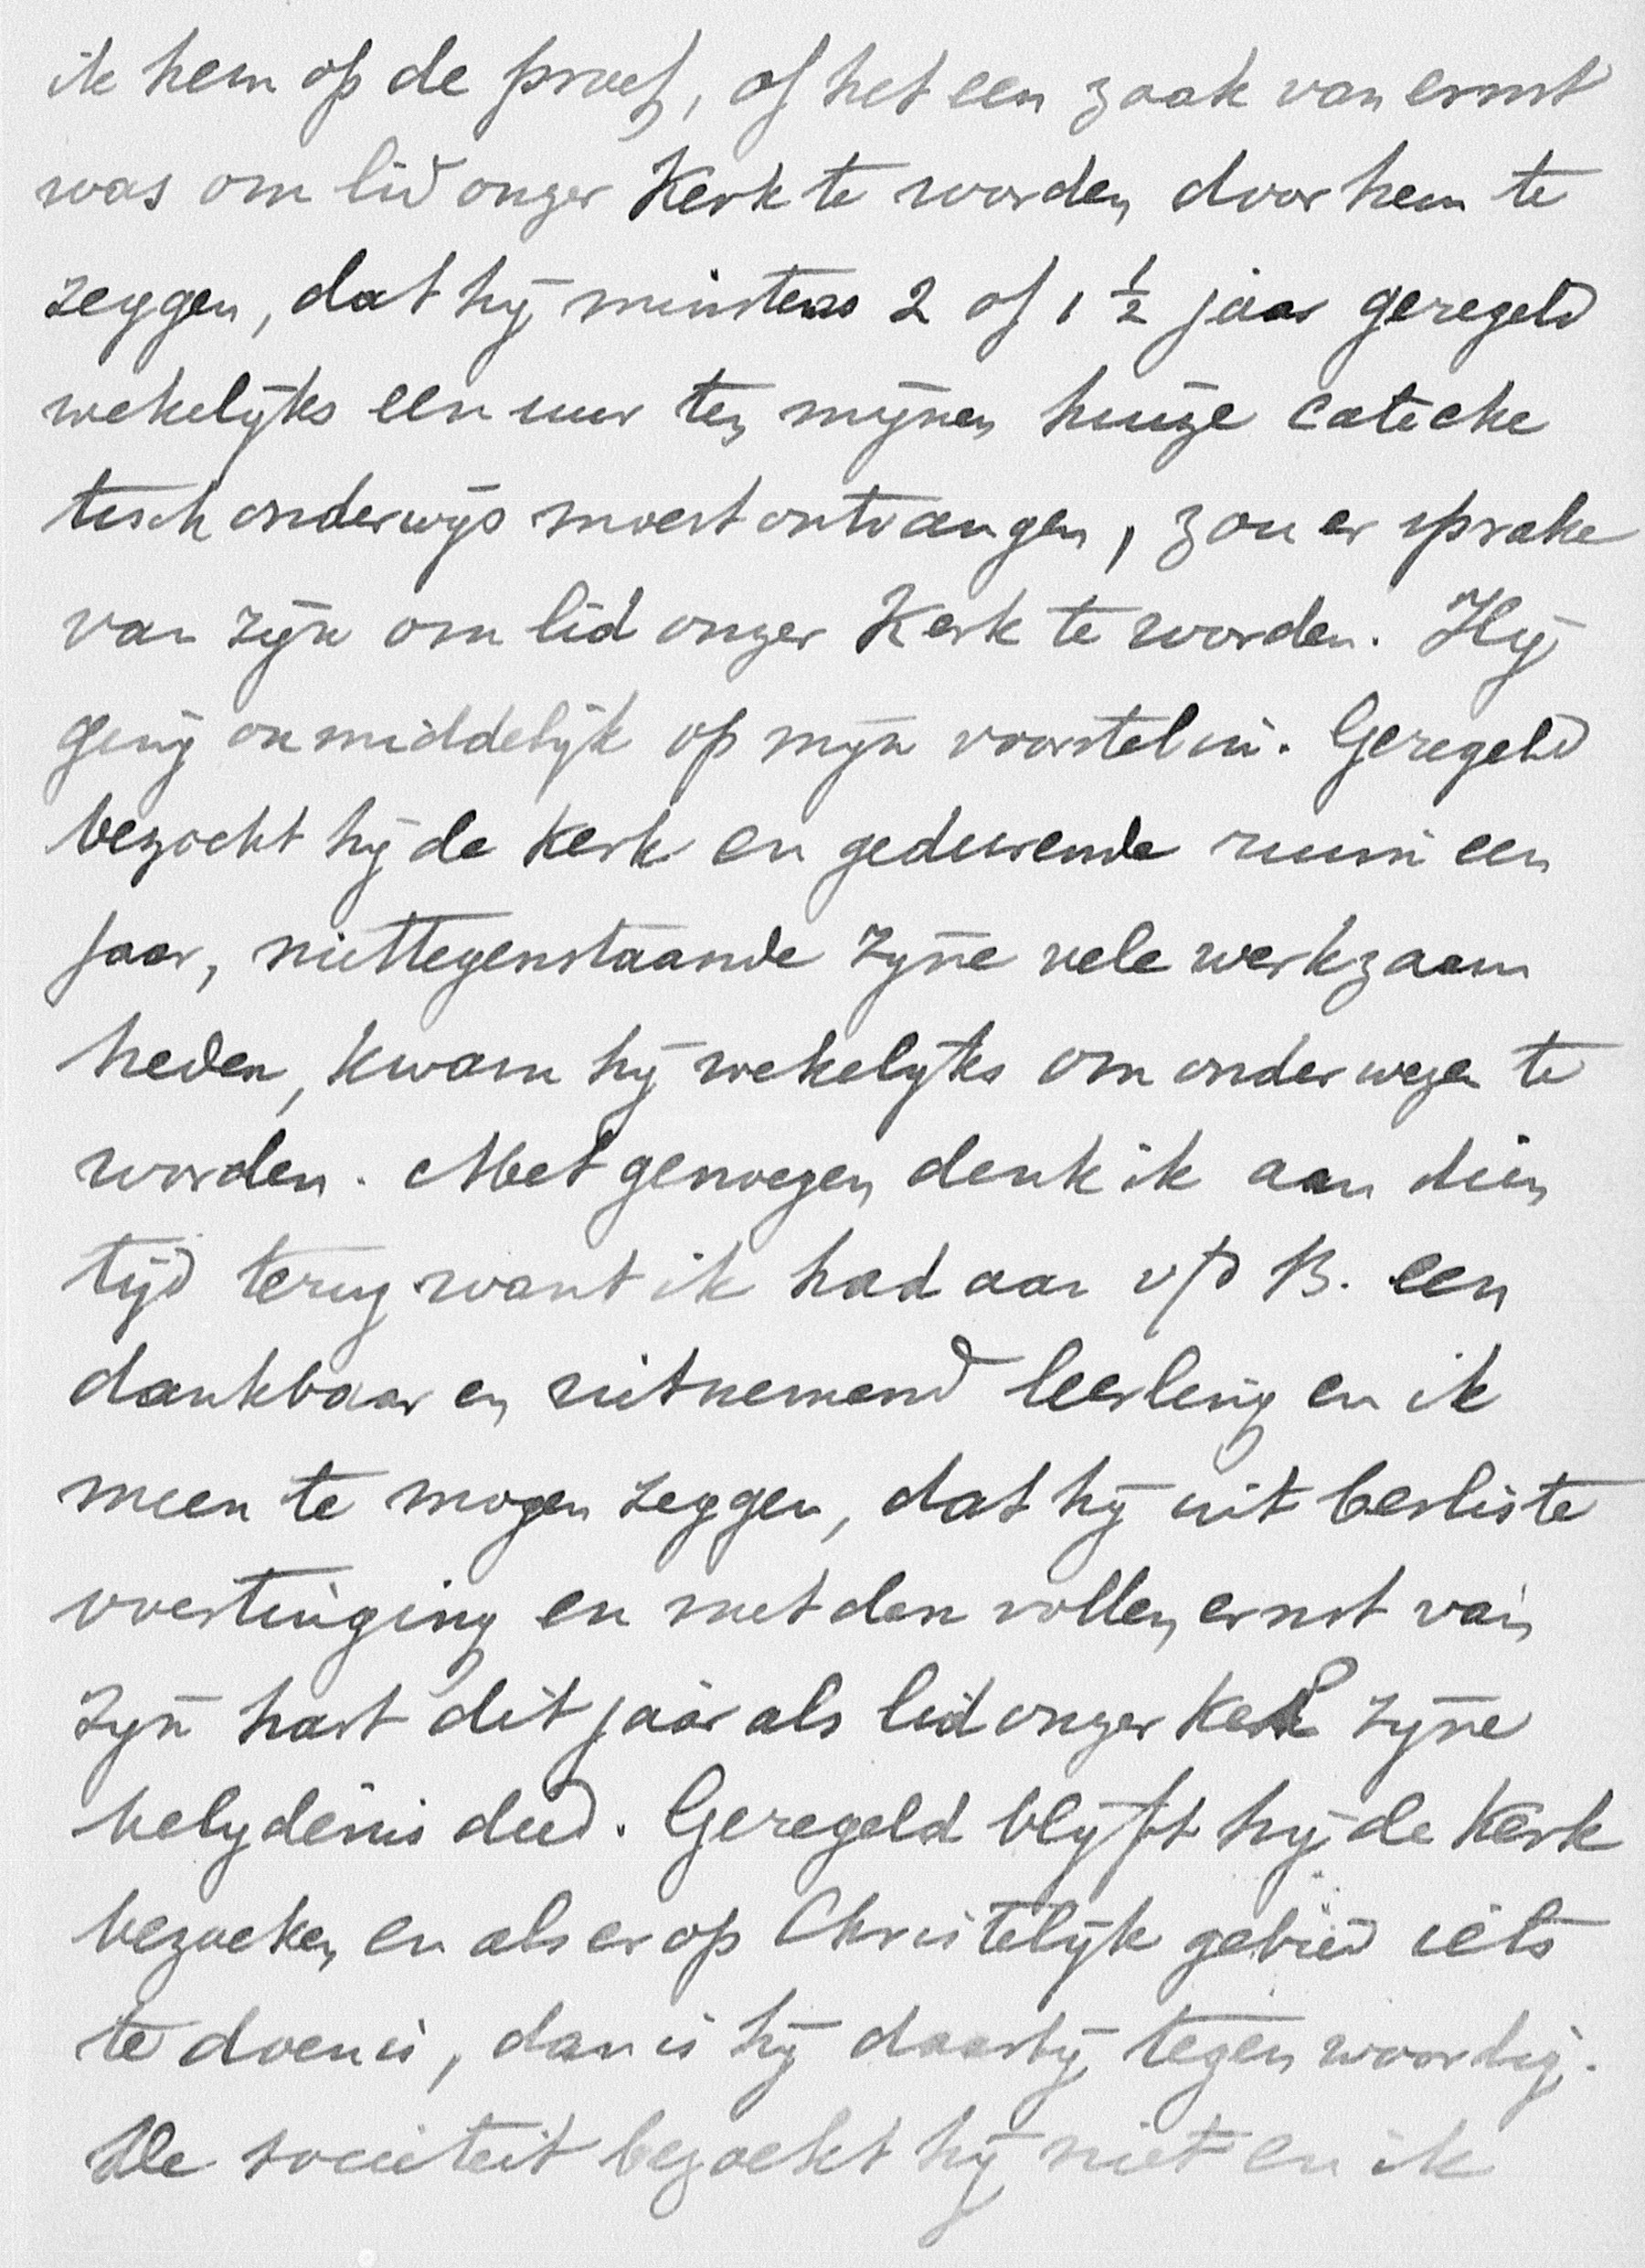 ik hem op de proef, of het een zaak van ernst
was om lid onzer Kerk te worden, door hem te
zeggen, dat hij minstens 2 of 1 ½ jaar geregeld
wekelijks een uur ten mijnen huize cateche
tisch onderwijs moest ontvangen, zou er sprake
van zijn om lid onzer Kerk te worden. Hij
ging onmiddelijk op mijn voorstel in. Geregeld
bezocht hij de Kerk en gedurende ruim een
jaar, niettegenstaande zijne vele werkzaam
heden, kwam hij wekelijks om onderwezen te
worden. Met genoegen denk ik aan dien
tijd terug want ik had aan v/d B. een
dankbaar en uitnemend leerling en ik
meen te mogen zeggen, dat hij uit besliste
overtuiging en met den vollen ernst van
zijn hart dit jaar als lid onzer Kerk zijne
belijdenis deed. Geregeld blijft hij de Kerk
bezoeken en als er op Christelijk gebied iets
te doen is, dan is hij daarbij tegenwoordig.
De societeit bezoekt hij niet en ik